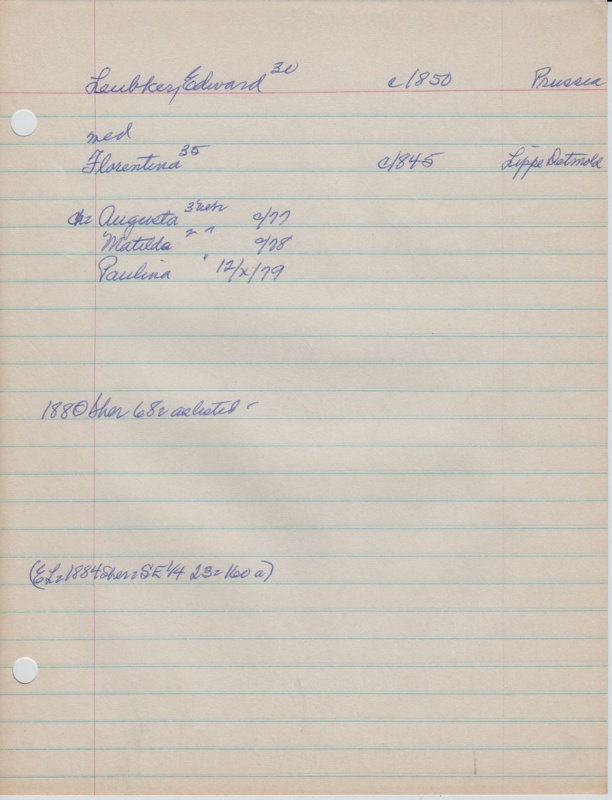 Leubker, Edward 30 c/1850 Prussia
med
Florentina 35 c/1845 Lippe Detmold
ch= Augusta 3 Nebr c/77
Matilda 2 " c/78
Paulina " 12/x/79
1880 Sher 682 as listed -
(EL=1884 Sher=SE 1/4 23=160 a)